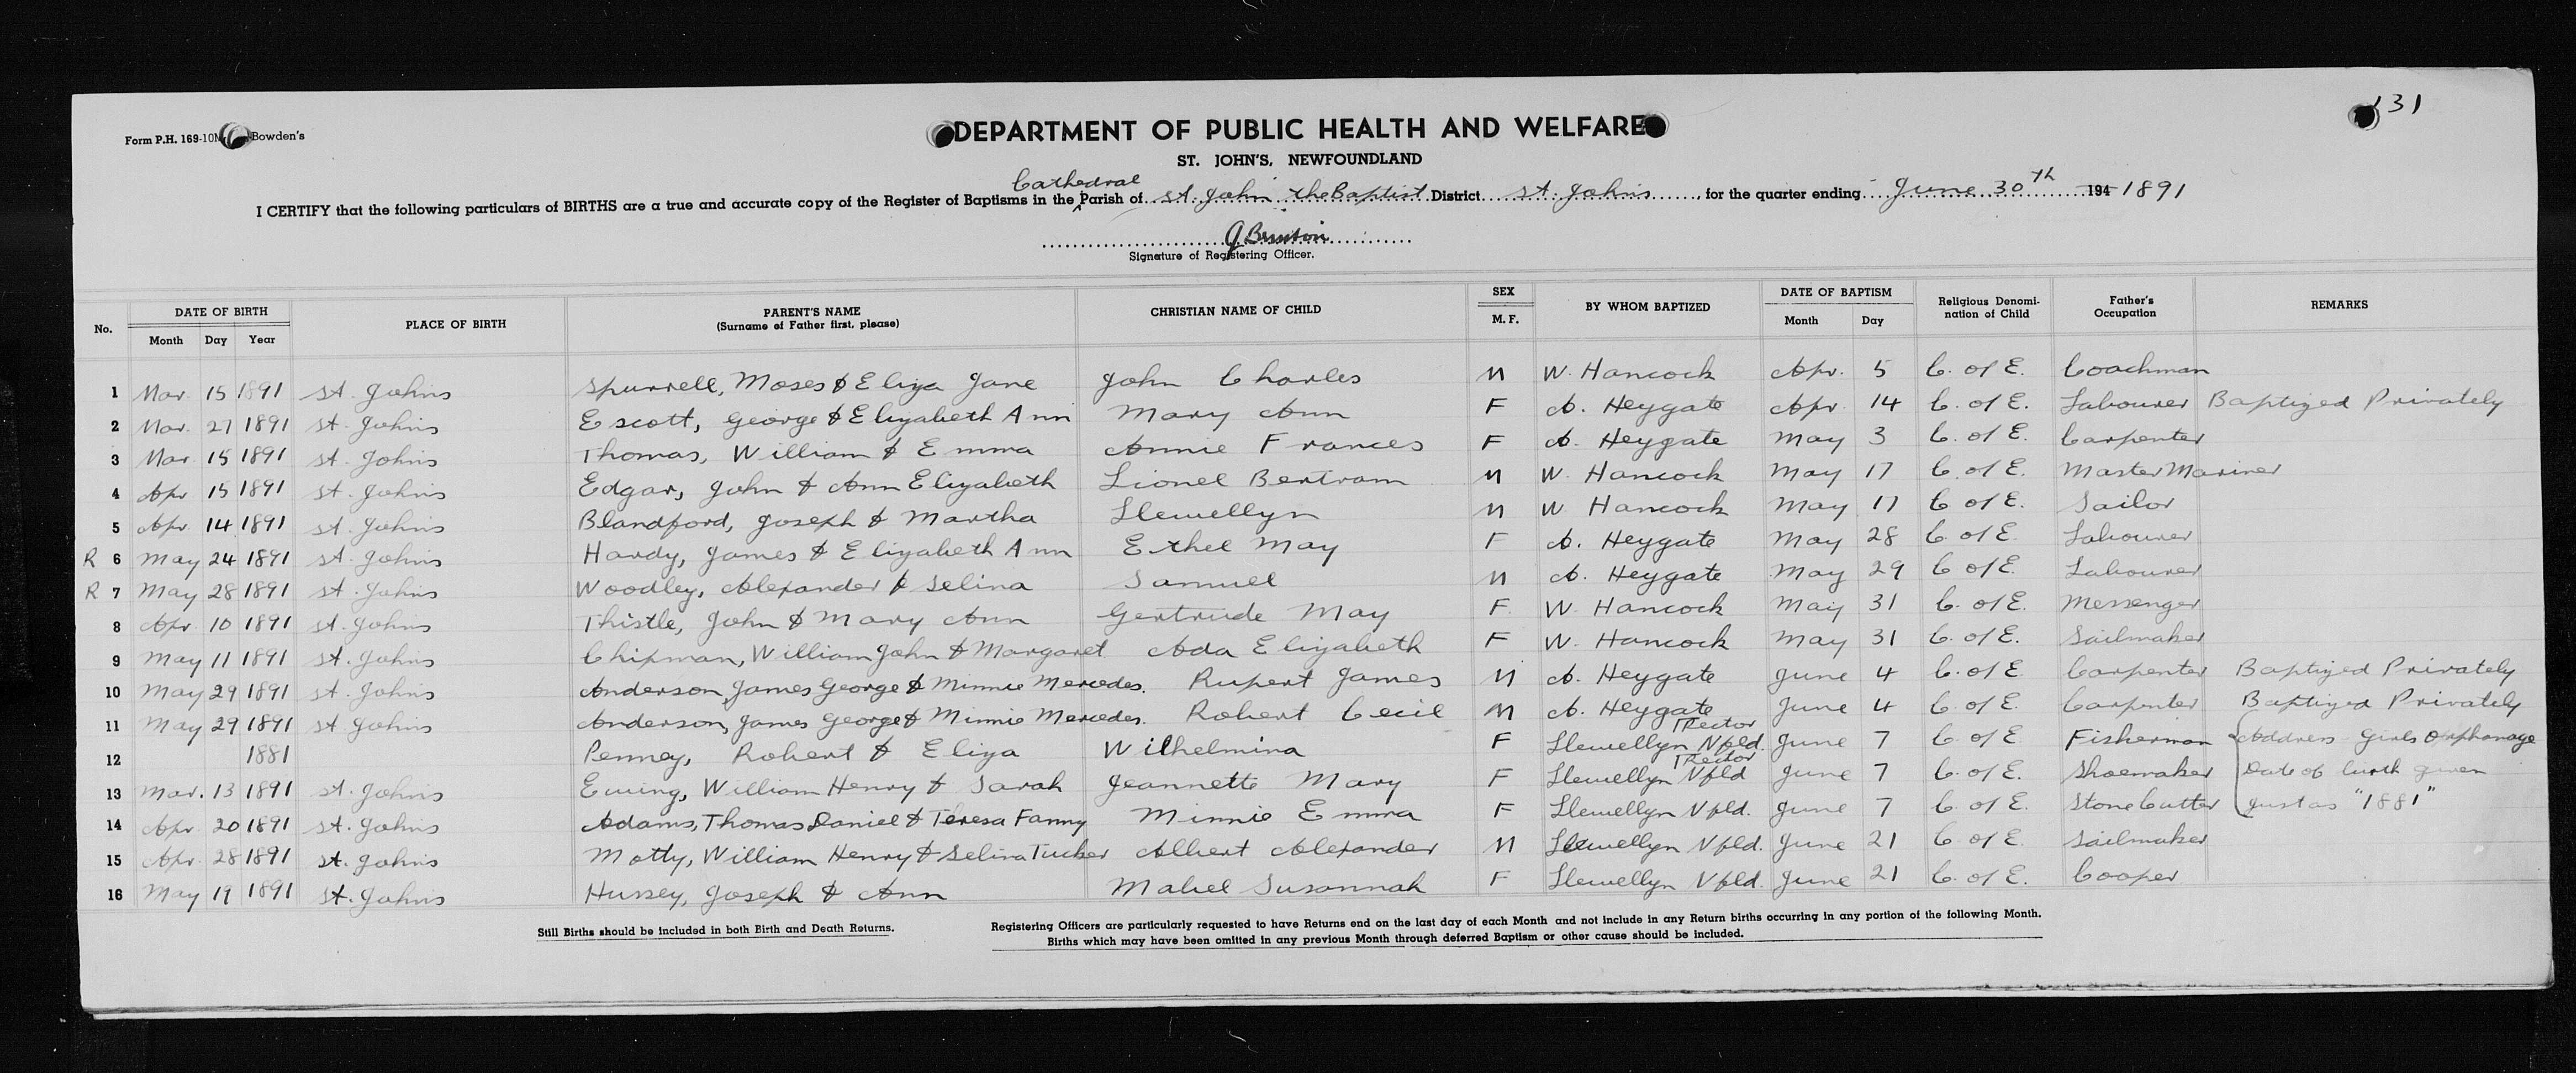 Form P.H. 169-10M Bowden's
131
DEPARTMENT OF PUBLIC HEALTH AND WELFARE
ST. JOHN'S, NEWFOUNDLAND
Cathedral
I CERTIFY that the following particulars of BIRTHS are a true and accurate copy of the Register of Baptisms in the Parish of St. John the Baptist District St. Johns, for the quarter ending June 30th 194 1891
Signature of Registering Officer.
No. DATE OF BIRTH PLACE OF BIRTH PARENT'S NAME (Surname of Father first, please) CHRISTIAN NAME OF CHILD SEX M. F. BY WHOM BAPTIZED DATE OF BAPTISM Religious Denomi-nation of Child Father's Occupation REMARKS
Month Day Year Month Day
1 Mar. 15 1891 St. Johns Spurrell, Moses & Eliza Jane John Charles M W. Hancock Apr. 5 C. of E. Coachman
2 Mar. 27 1891 St. Johns Escott, George & Elizabeth Ann Mary Ann F A. Heygate Apr 14 C. of E. Labourer Baptized Privately
3 Mar. 15 1891 St. Johns Thomas, William & Emma Annie Frances F A. Heygate May 3 C. of E. Carpenter
4 Apr 15 1891 St. Johns Edgar, John & Ann Elizabeth Lionel Bertram M W. Hancock May 17 C. of E. Master Mariner
5 Apr. 14 1891 St. Johns Blandford, Joseph & Martha Llewellyn M W Hancock May 17 C of E. Sailor
R 6 May 24 1891 St. Johns Hardy, James & Elizabeth Ann Ethel May F A. Heygate May 28 C. of E. Labourer
R 7 May 28 1891 St. Johns Woodley, Alexander & Selina Samuel M A. Heygate May 29 C of E. Labourer
8 Apr. 10 1891 St. Johns Thistle, John & Mary Ann Gertrude May F. W. Hancock May 31 C. of E. Messenger
9 May 11 1891 St. Johns Chipman, William John & Margaret Ada Elizabeth F W. Hancock May 31 C. of E. Sailmaker
10 May 29 1891 St. Johns Anderson, James George & Minnie Mercedes. Rupert James M A. Heygate June 4 C. of E. Carpenter Baptized Privately
11 May 29 1891 St Johns Anderson, James George & Minnie Mercedes. Robert Cecil M A. Heygate June 4 C. of E. Carpenter Baptized Privately
12 1881 Penney, Robert & Eliza Wilhelmina F Llewellyn Nfld. Rector June 7 C. of E Fisherman Address Girls Orphanage
13 Mar. 13 1891 St. Johns Ewing, William Henry & Sarah Jeannette Mary F Llewellyn Nfld Rector June 7 C. of E. Shoemaker Date of birth given
14 Apr. 20 1891 St. Johns Adams, Thomas Daniel & Teresa Fanny Minnie Emma F Llewellyn Nfld. June 7 C. of E. Stone Cutter just as "1881"
15 Apr. 28 1891 St. Johns Motty, William Henry & Selina Tucker Albert Alexander M Llewellyn Nfld. June 21 C. of E. Sailmaker
16 May 19 1891 St. Johns Hussey, Joseph & Ann Mabel Susannah F Llewellyn Nfld. June 21 C. of E. Cooper
Still Births should be included in both Birth and Death Returns.
Registering Officers are particularly requested to have Returns end on the last day of each Month and not include in any Return births occurring in any portion of the following Month.
Births which may have been omitted in any previous Month through deferred Baptism or other cause should be included.